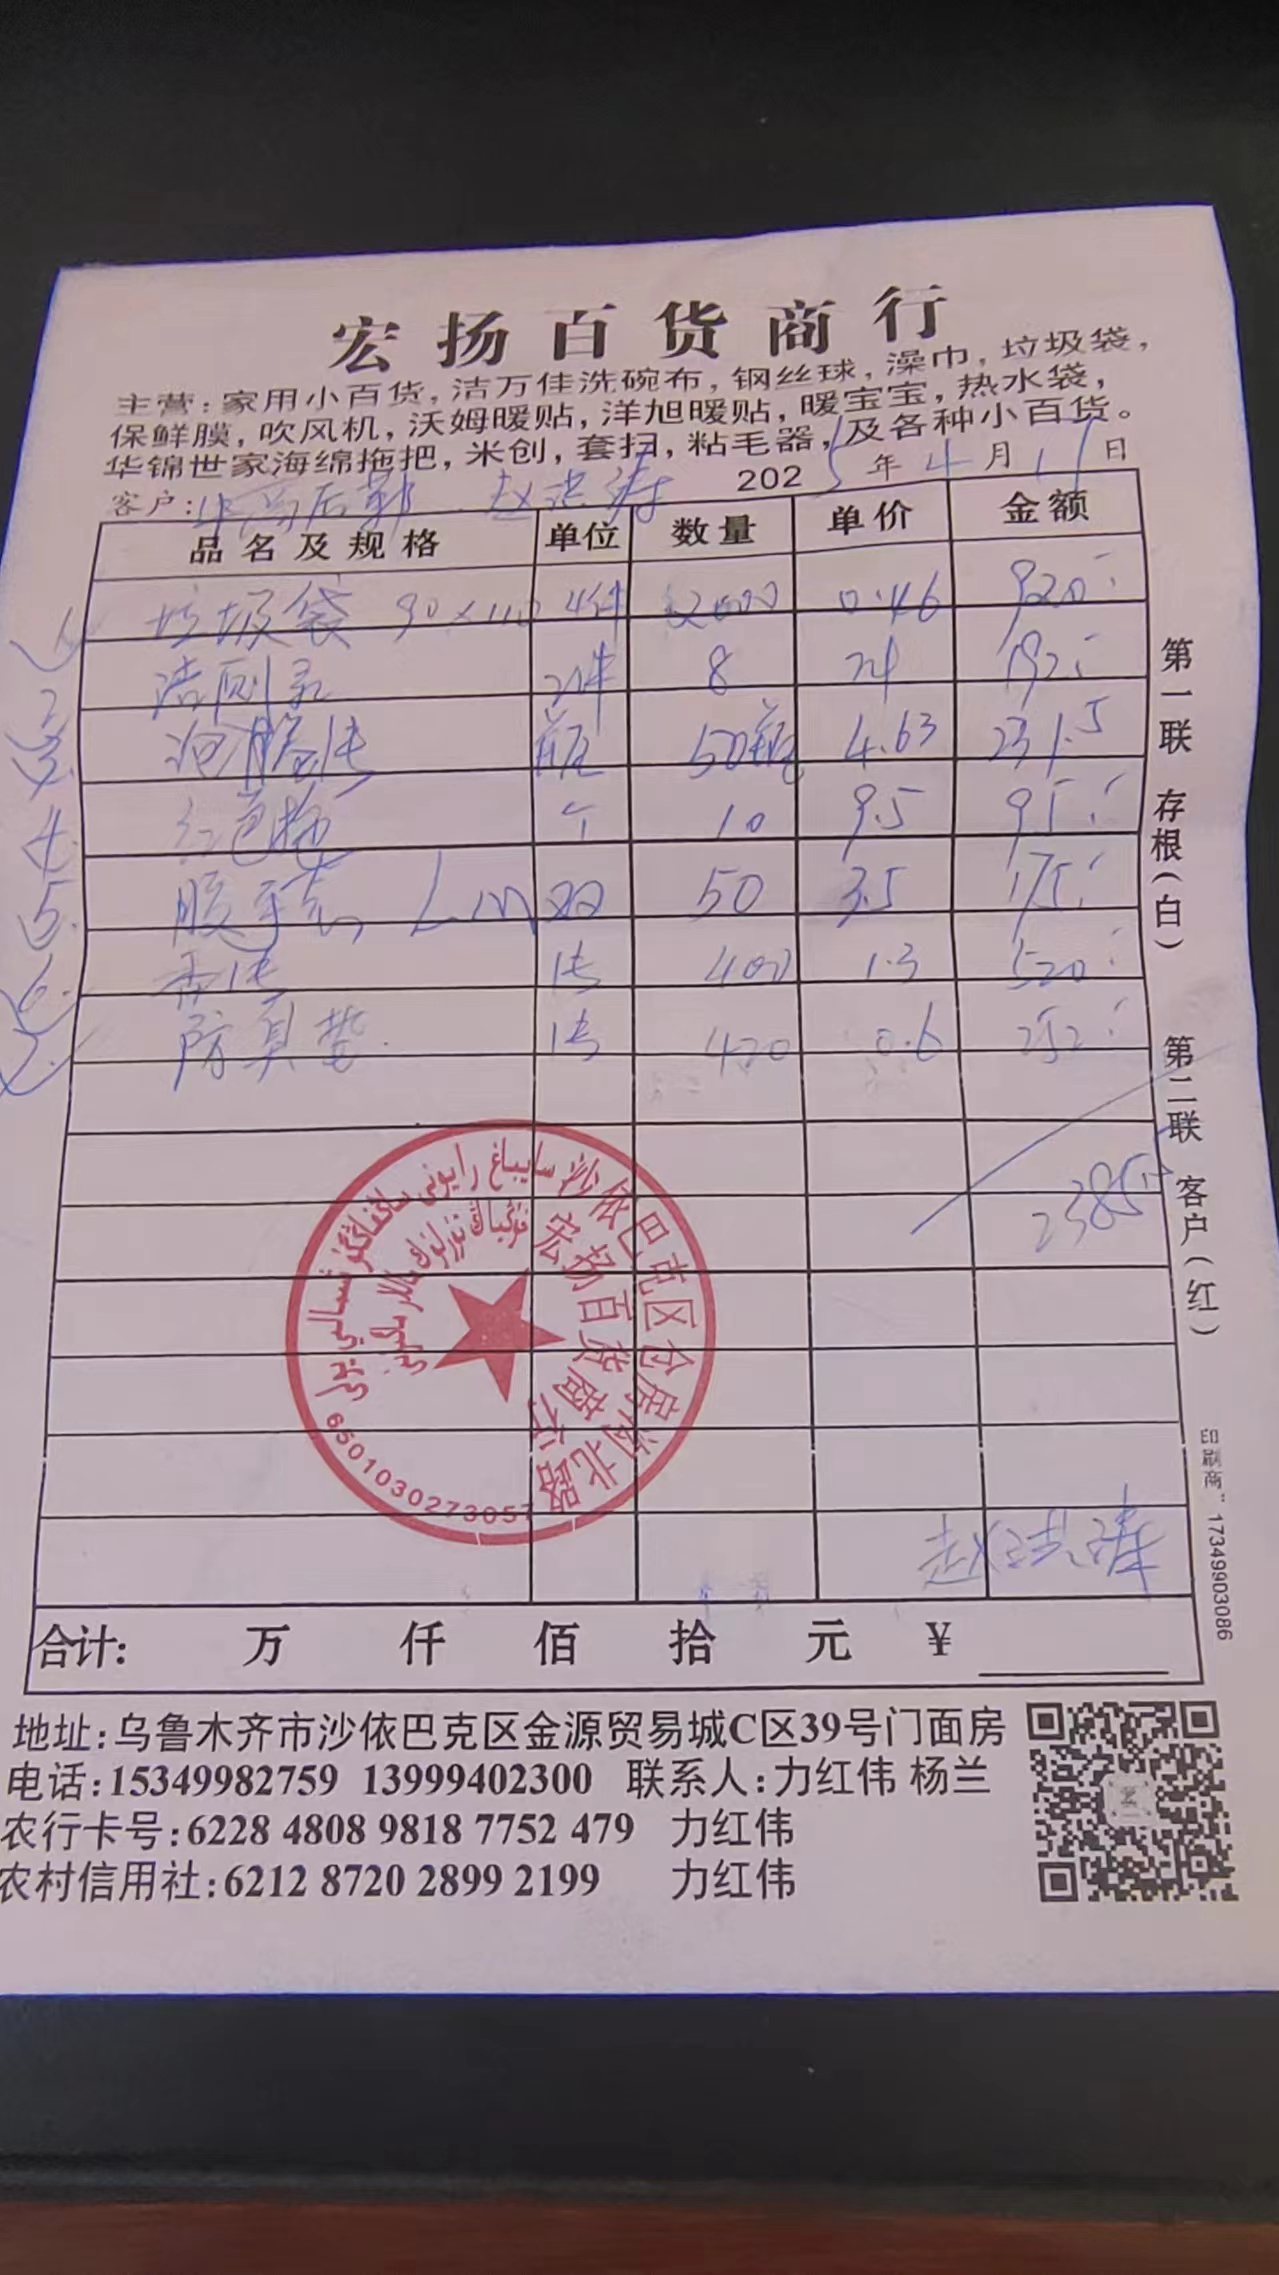 宏扬百货商行
主营：家用小百货，洁万佳洗碗布，钢丝球，澡巾，垃圾袋，
保鲜膜，吹风机，沃姆暖贴，洋旭暖贴，暖宝宝，热水袋，
华锦世家海绵拖把，米创，套扫，粘毛器，及各种小百货。
客户： 后勤 2025年4月11日
品名及规格 单位 数量 单价 金额
1 垃圾袋 90×110 4件 2000 0.46 920
2 洁厕灵 2件 8 24 192
3 瓶 50瓶 4.63 231.5
4 红色 个 10 9.5 95
5 胶手套 L m 双 50 3.5 175
6 400 1.3 520
7 防臭垫 420 0.6 252
2385.5
沙依巴克区仓房沟北路
宏扬百货商行
6501030273057
合计： 万 仟 佰 拾 元 ¥
地址：乌鲁木齐市沙依巴克区金源贸易城C区39号门面房
电话：15349982759 13999402300 联系人：力红伟 杨兰
农行卡号：6228 4808 9818 7752 479 力红伟
农村信用社：6212 8720 2899 2199 力红伟
第一联 存根（白） 第二联 客户（红）
印刷商：17349903086